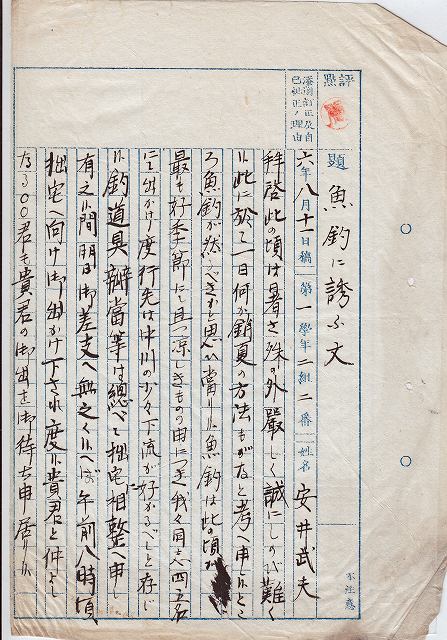 評點
添削訂正及自
己訂正ノ理由
題 魚釣に誘ふ文
六年八月十一日稿 第一學年二組二番 姓名 安井武夫
拝啓此の頃は暑さ殊の外嚴しく誠にしのぎ難く
候此に於て一日何か銷夏の方法もがなと考へ申候ところ
魚釣が然るべきかと思ひ當り候魚釣は此の頃が
最も好季節にて且つ凉しきもの由につき我々同志四五名
にて出かけ度行先は中川の少々下流が好かるべしと存じ
候釣道具辨當等は總べて拙宅に相整へ申し
有之候間明日御差支へ無之く候へば午前八時頃
拙宅へ向け御出かけ下され度候貴君と仲よし
なる○○君も貴君の御出を御待ち申居り候
不注意